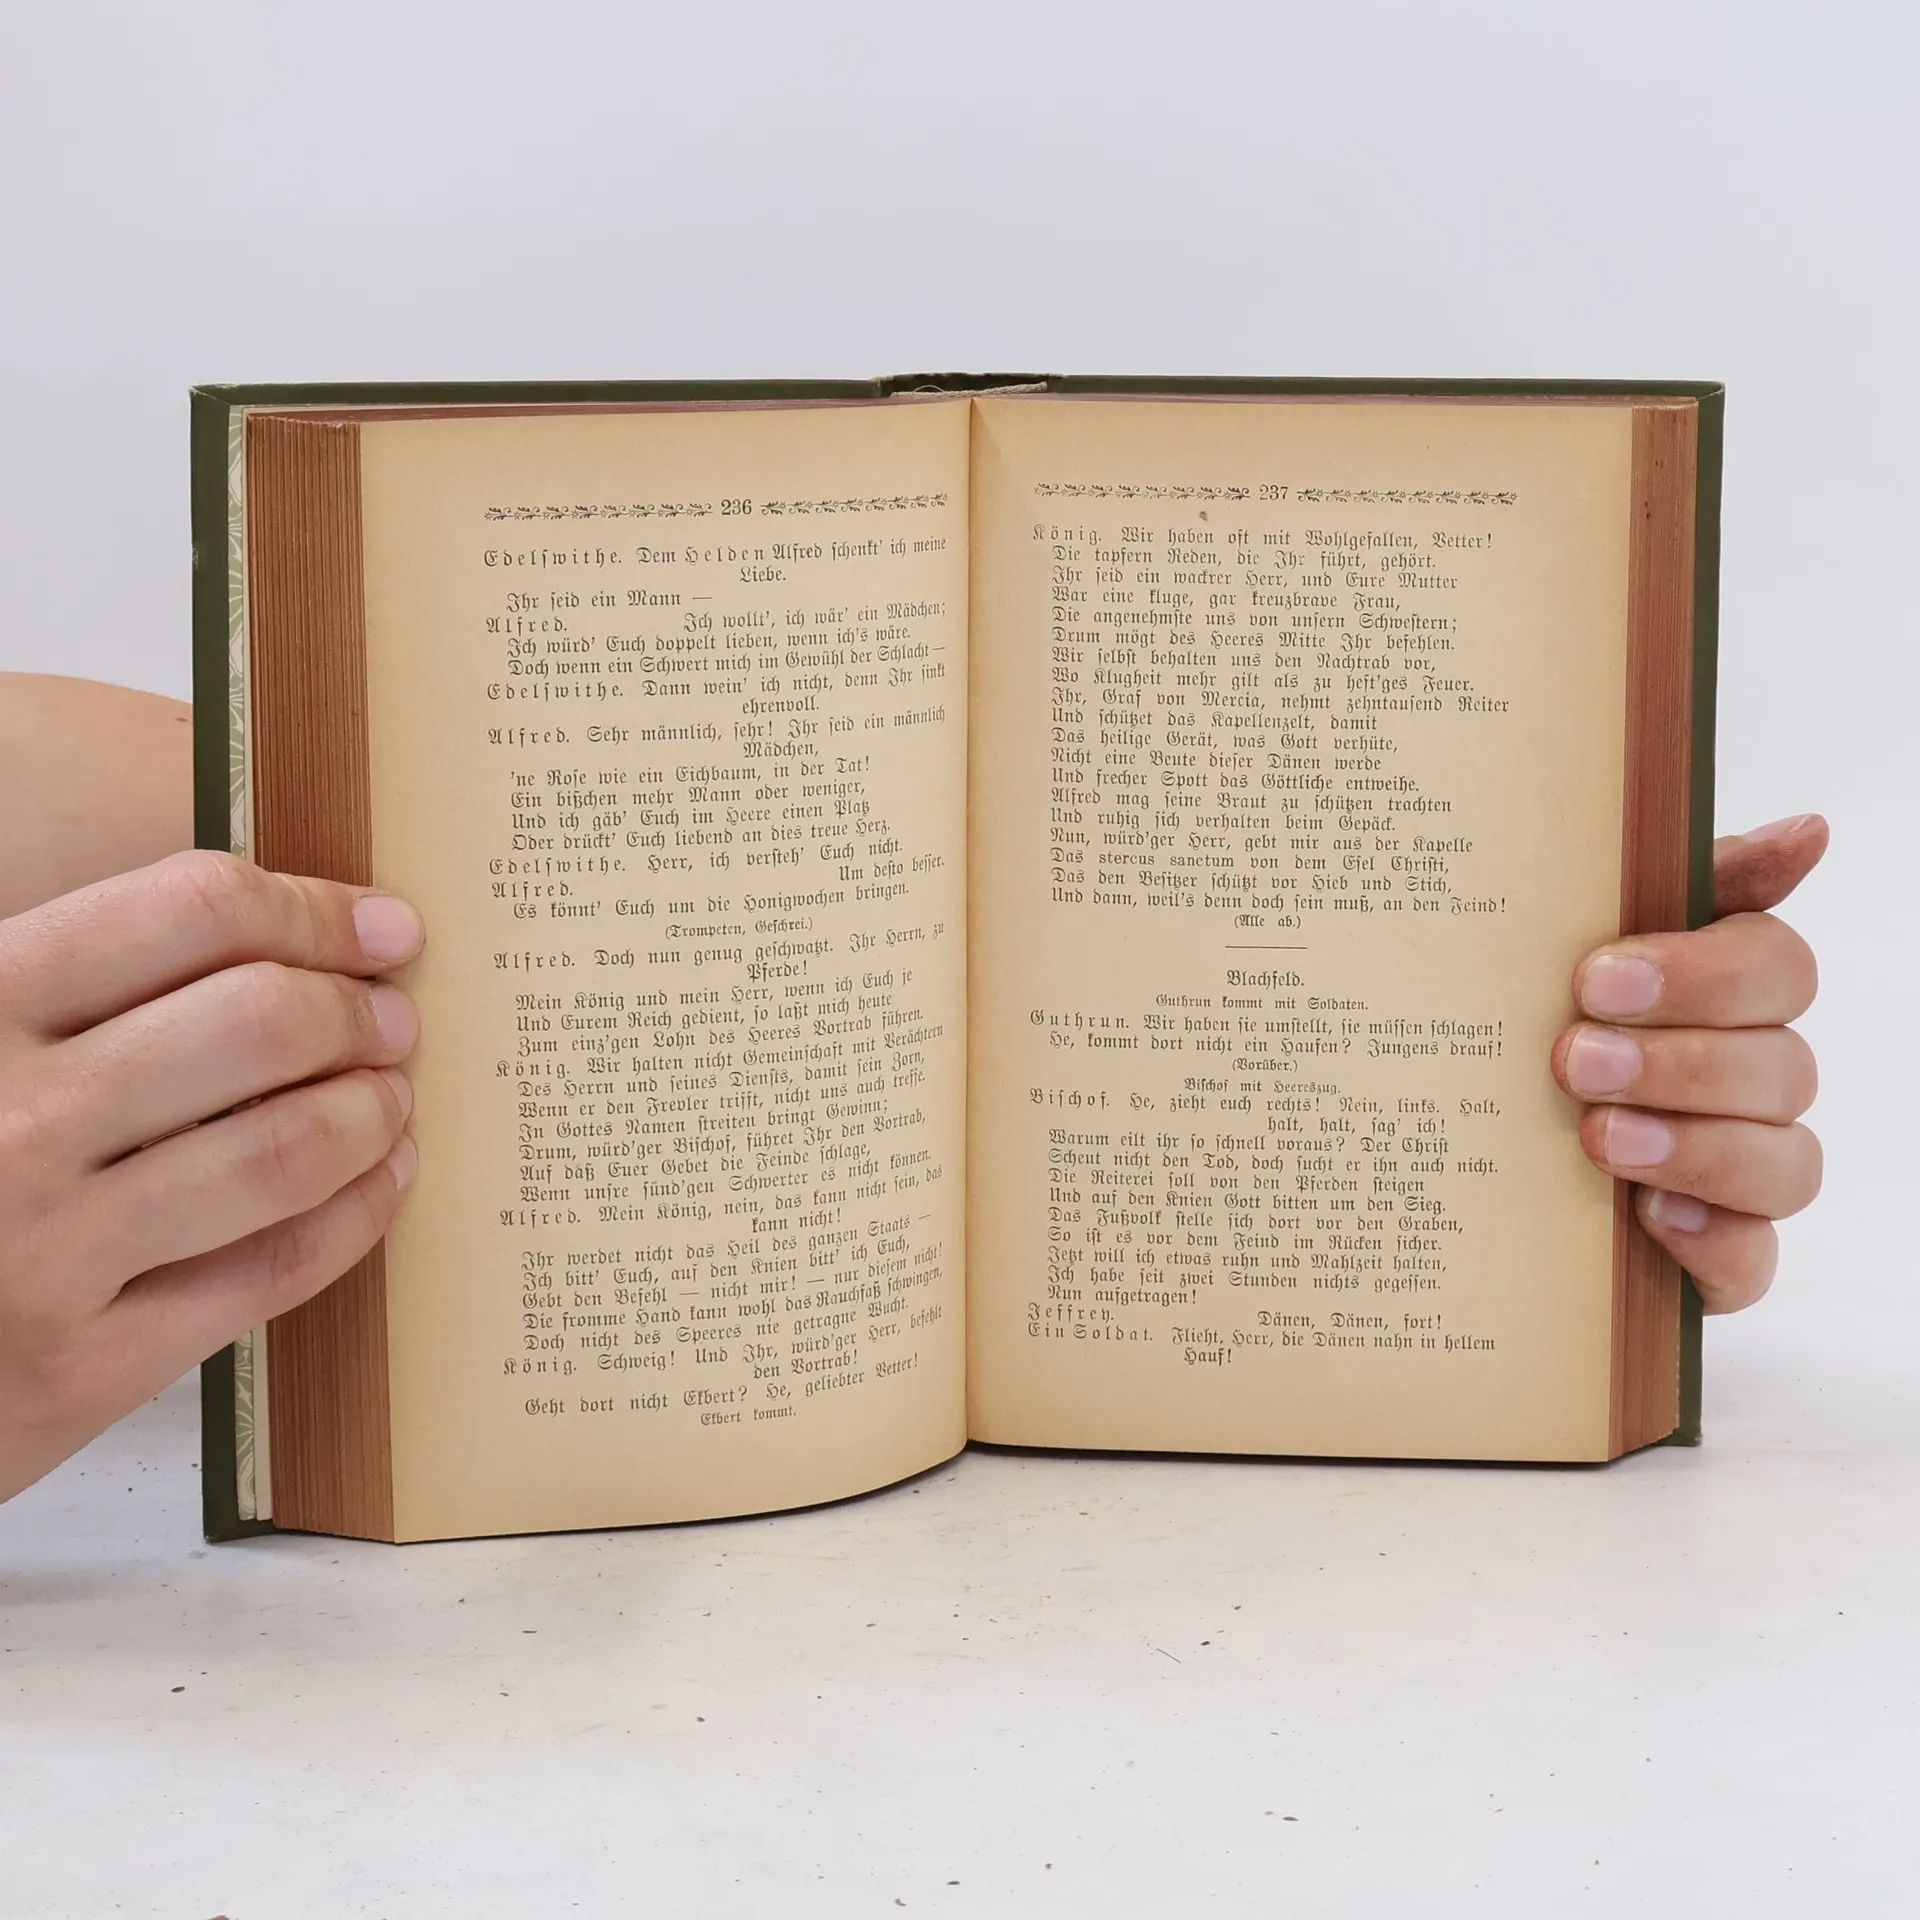 236
Edelswithe. Dem Helden Alfred schenkt' ich meine
Liebe.
Ihr seid ein Mann —
Alfred. Ich wollt', ich wär' ein Mädchen;
Ich würd' Euch doppelt lieben, wenn ich's wäre.
Doch wenn ein Schwert mich im Gewühl der Schlacht—
Edelswithe. Dann wein' ich nicht, denn Ihr sinkt
ehrenvoll.
Alfred. Sehr männlich, sehr! Ihr seid ein männlich
Mädchen,
'ne Rose wie ein Eichbaum, in der Tat!
Ein bißchen mehr Mann oder weniger,
Und ich gäb' Euch im Heere einen Platz
Oder drückt' Euch liebend an dies treue Herz.
Edelswithe. Herr, ich versteh' Euch nicht.
Alfred. Um desto besser.
Es könnt' Euch um die Honigwochen bringen.
(Trompeten, Geschrei.)
Alfred. Doch nun genug geschwatzt. Ihr Herrn, zu
Pferde!
Mein König und mein Herr, wenn ich Euch je
Und Eurem Reich gedient, so laßt mich heute
Zum einz'gen Lohn des Heeres Vortrab führen.
König. Wir halten nicht Gemeinschaft mit Verächtern
Des Herrn und seines Diensts, damit sein Zorn,
Wenn er den Frevler trifft, nicht uns auch treffe.
In Gottes Namen streiten bringt Gewinn;
Drum, würd'ger Bischof, führet Ihr den Vortrab,
Auf daß Euer Gebet die Feinde schlage,
Wenn unsre sünd'gen Schwerter es nicht können.
Alfred. Mein König, nein, das kann nicht sein, das
kann nicht!
Ihr werdet nicht das Heil des ganzen Staats —
Ich bitt' Euch, auf den Knien bitt' ich Euch,
Gebt den Befehl — nicht mir! — nur diesem nicht!
Die fromme Hand kann wohl das Rauchfaß schwingen,
Doch nicht des Speeres nie getragne Wucht.
König. Schweig! Und Ihr, würd'ger Herr, befehlt
den Vortrab!
Geht dort nicht Ekbert? He, geliebter Vetter!
Ekbert kommt.
237
König. Wir haben oft mit Wohlgefallen, Vetter!
Die tapfern Reden, die Ihr führt, gehört.
Ihr seid ein wackrer Herr, und Eure Mutter
War eine kluge, gar kreuzbrave Frau,
Die angenehmste uns von unsern Schwestern;
Drum mögt des Heeres Mitte Ihr befehlen.
Wir selbst behalten uns den Nachtrab vor,
Wo Klugheit mehr gilt als zu heft'ges Feuer.
Ihr, Graf von Mercia, nehmt zehntausend Reiter
Und schützet das Kapellenzelt, damit
Das heilige Gerät, was Gott verhüte,
Nicht eine Beute dieser Dänen werde
Und frecher Spott das Göttliche entweihe.
Alfred mag seine Braut zu schützen trachten
Und ruhig sich verhalten beim Gepäck.
Nun, würd'ger Herr, gebt mir aus der Kapelle
Das stercus sanctum von dem Esel Christi,
Das den Besitzer schützt vor Hieb und Stich,
Und dann, weil's denn doch sein muß, an den Feind!
(Alle ab.)
Blachfeld.
Guthrun kommt mit Soldaten.
Guthrun. Wir haben sie umstellt, sie müssen schlagen!
He, kommt dort nicht ein Haufen? Jungens drauf!
(Vorüber.)
Bischof mit Heereszug.
Bischof. He, zieht euch rechts! Nein, links. Halt,
halt, halt, sag' ich!
Warum eilt ihr so schnell voraus? Der Christ
Scheut nicht den Tod, doch sucht er ihn auch nicht.
Die Reiterei soll von den Pferden steigen
Und auf den Knien Gott bitten um den Sieg.
Das Fußvolk stelle sich dort vor den Graben,
So ist es vor dem Feind im Rücken sicher.
Jetzt will ich etwas ruhn und Mahlzeit halten,
Ich habe seit zwei Stunden nichts gegessen.
Nun aufgetragen!
Jeffrey. Dänen, Dänen, fort!
Ein Soldat. Flieht, Herr, die Dänen nahn in hellem
Hauf!